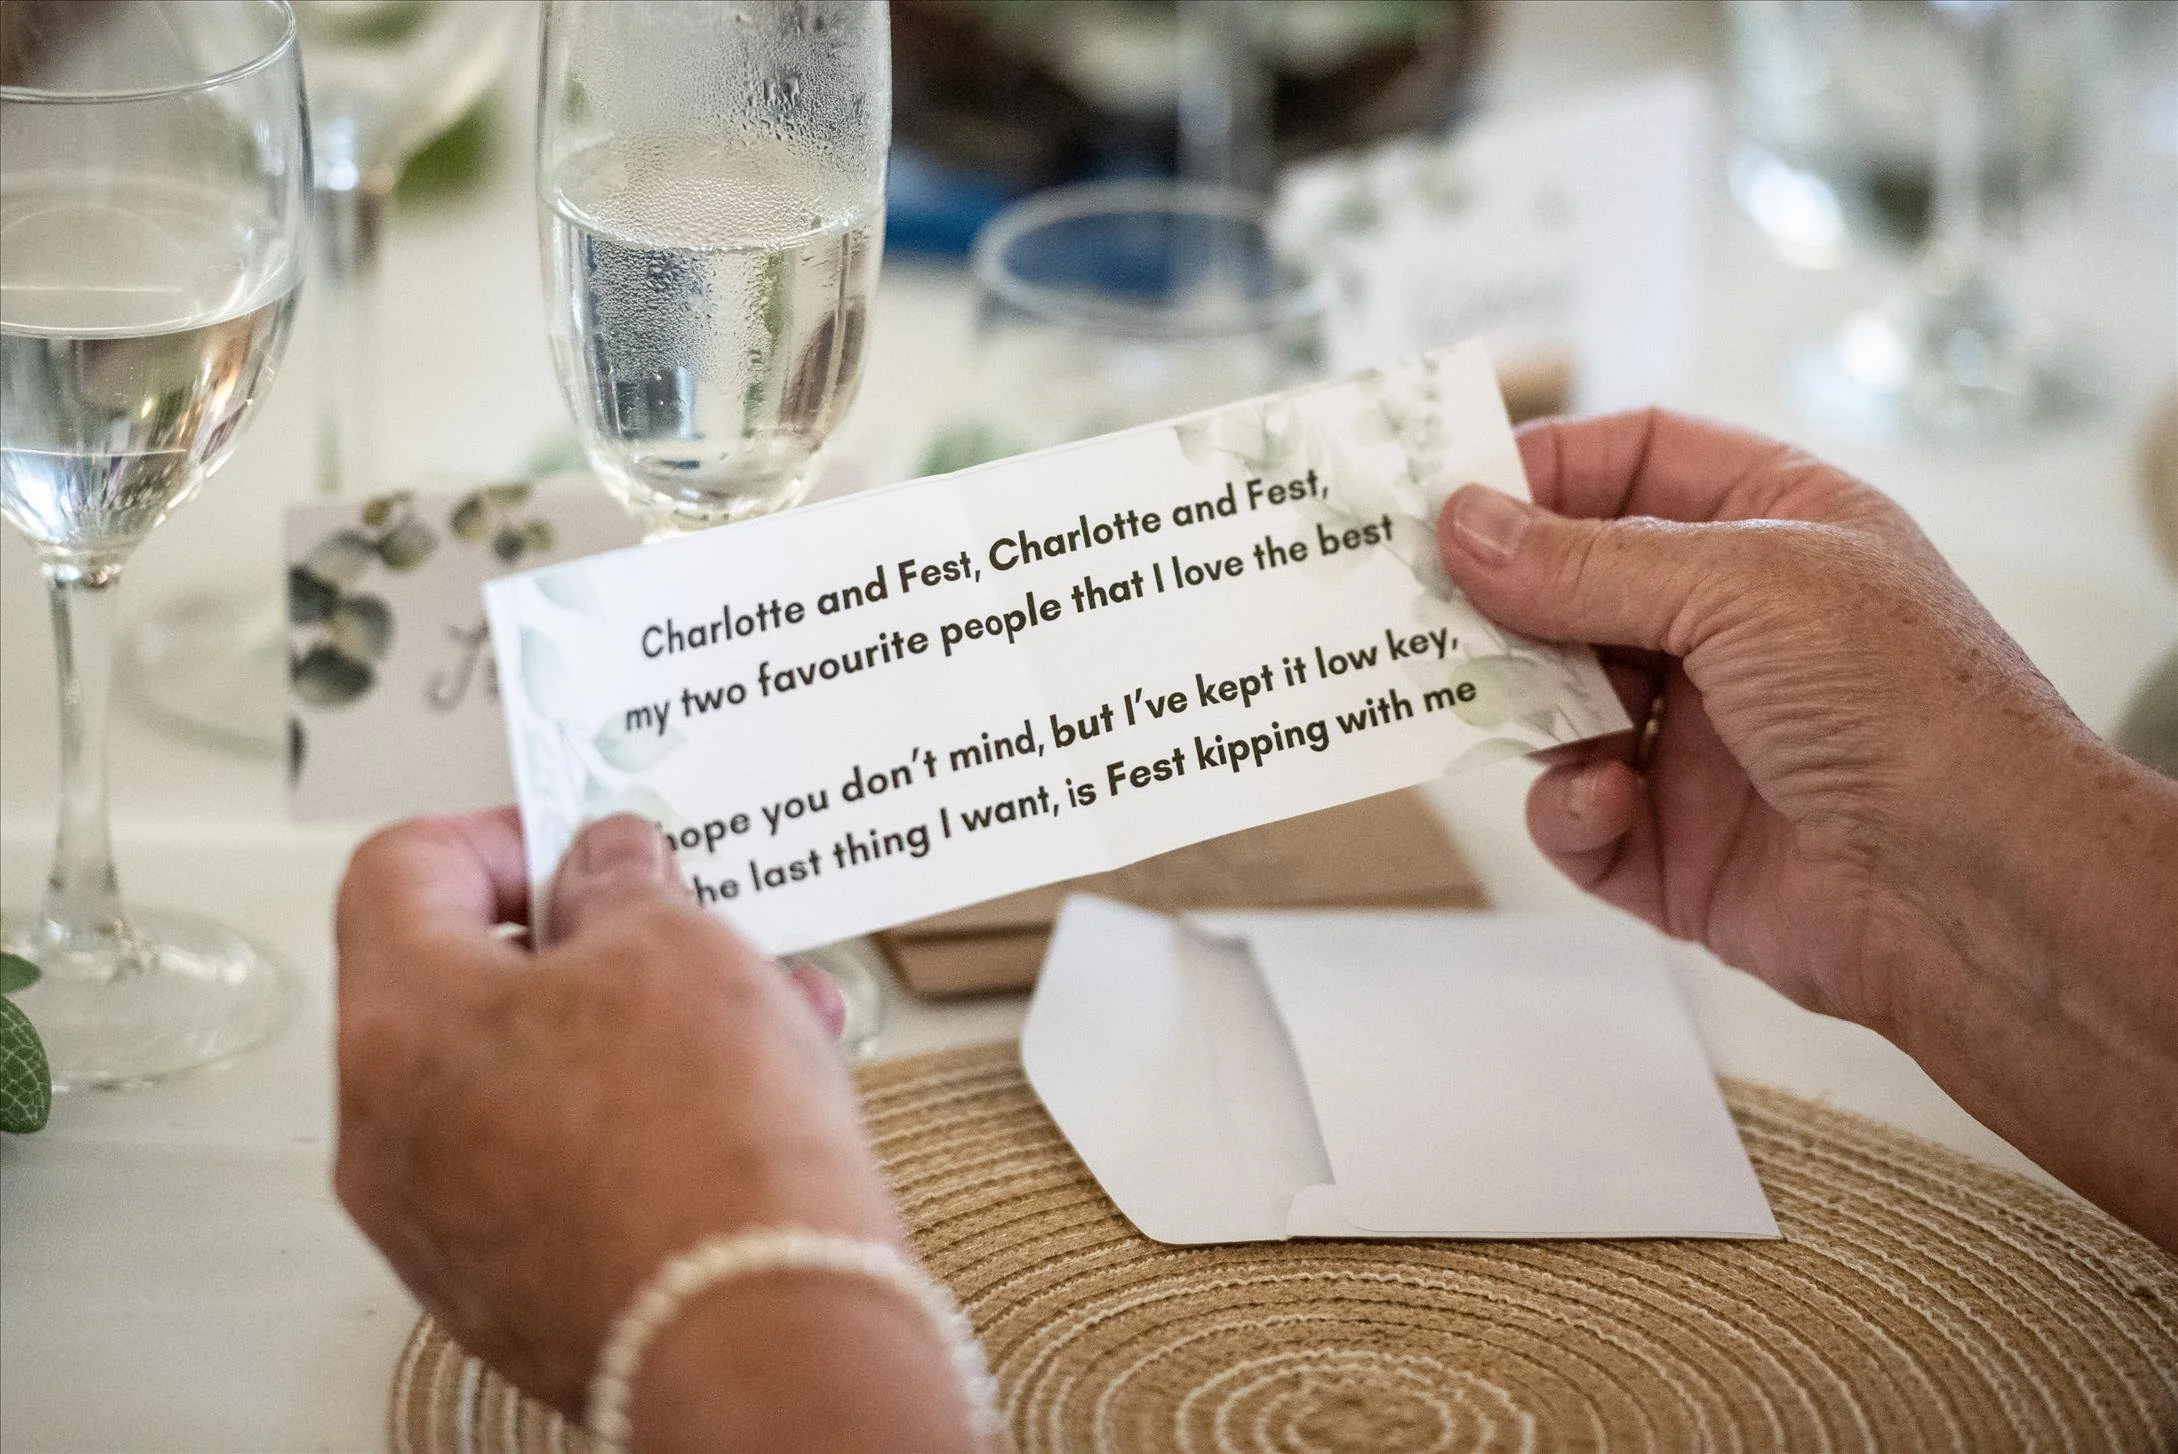 Charlotte and Fest, Charlotte and Fest,
my two favourite people that I love the best
hope you don't mind, but I've kept it low key,
he last thing I want, is Fest kipping with me